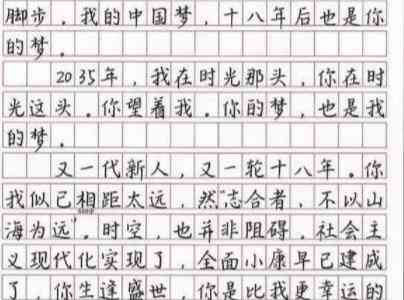 脚步。我的中国梦，十八年后也是你
的梦。
2035年，我在时光那头，你在时
光这头。你望着我。你的梦，也是我
的梦。
又一代新人，又一轮十八年。你
我似已相距太远，然“志合者，不以山
海为远”。时空，也并非阻碍。社会主
义现代化实现了，全面小康早已建成
了，你生逢盛世，你是比我更幸运的